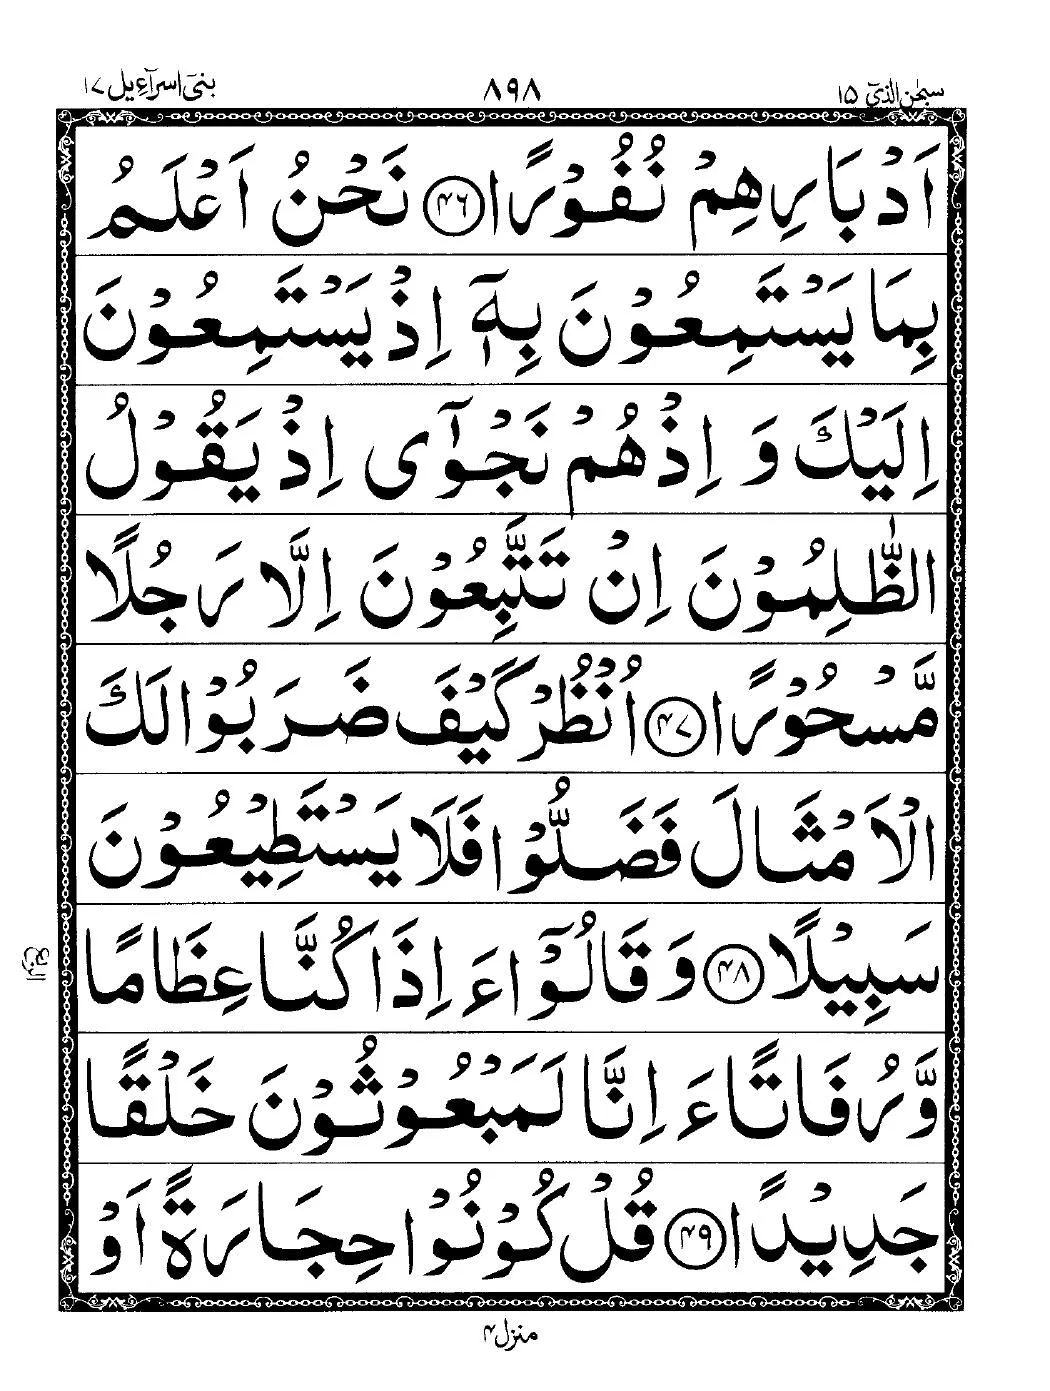 سبحٰن الذیٓ ۱۵ ۸۹۸ بنیٓ اسرآءیل ۱۷
اَدْبَارِهِمْ نُفُوْرًا ۴۶ نَحْنُ اَعْلَمُ
بِمَا يَسْتَمِعُوْنَ بِهٖٓ اِذْ يَسْتَمِعُوْنَ
اِلَيْكَ وَ اِذْ هُمْ نَجْوٰٓى اِذْ يَقُوْلُ
الظّٰلِمُوْنَ اِنْ تَتَّبِعُوْنَ اِلَّا رَجُلًا
مَّسْحُوْرًا ۴۷ اُنْظُرْ كَيْفَ ضَرَبُوْا لَكَ
الْاَمْثَالَ فَضَلُّوْا فَلَا يَسْتَطِيْعُوْنَ
سَبِيْلًا ۴۸ وَ قَالُوْٓا ءَاِذَا كُنَّا عِظَامًا
وَّ رُفَاتًا ءَاِنَّا لَمَبْعُوْثُوْنَ خَلْقًا
جَدِيْدًا ۴۹ قُلْ كُوْنُوْا حِجَارَةً اَوْ
الربع
منزل ۴